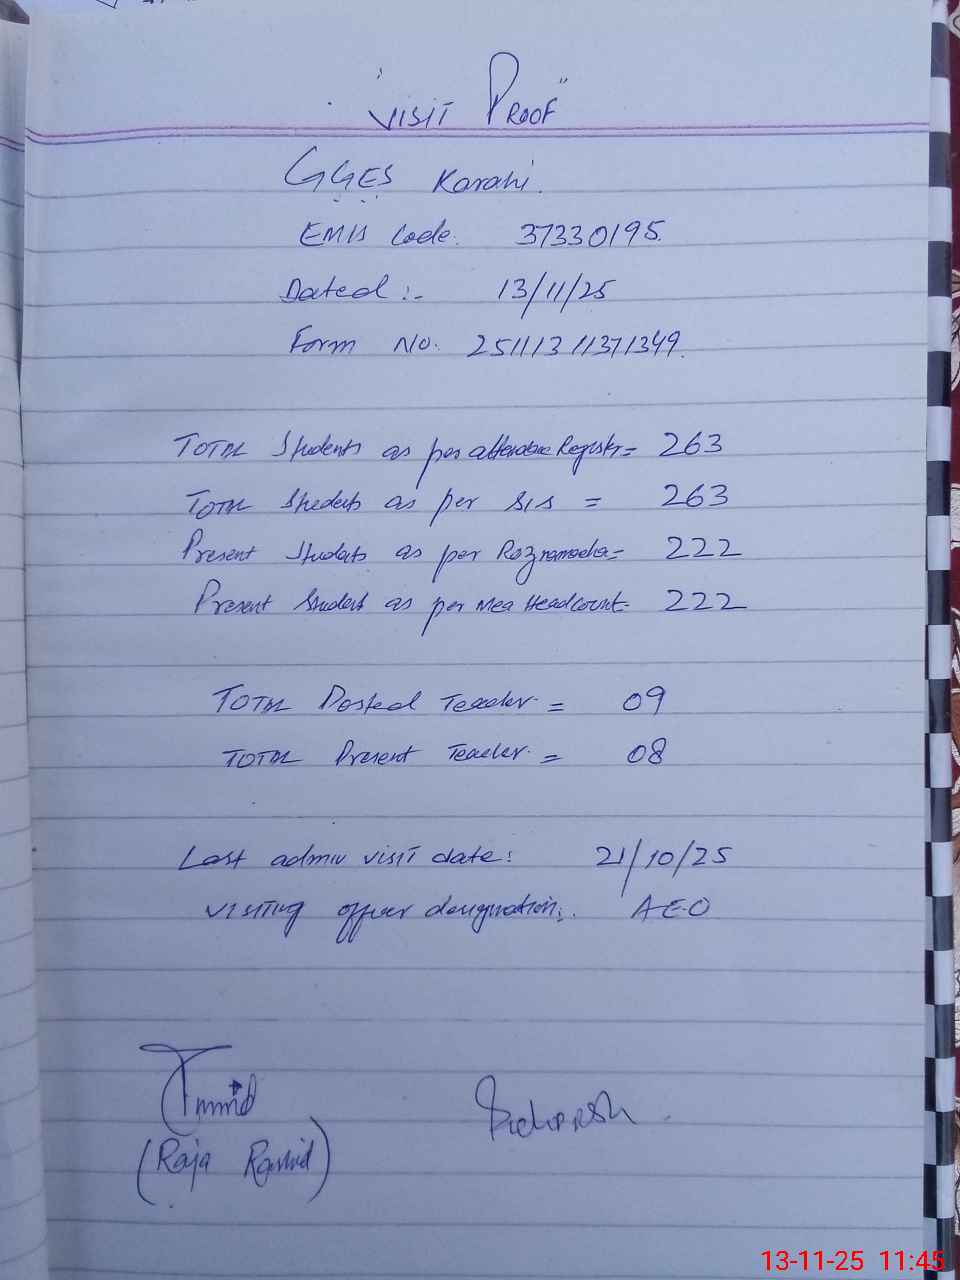 "VISIT PROOF"
GGES Karahi.
EMIS Code: 37330195.
Dated :- 13/11/25
Form No. 251113 11371349.
TOTAL Students as per attendance Register = 263
TOTAL Students as per SIS = 263
Present Students as per Roznamcha = 222
Present Student as per Mea Headcount - 222
TOTAL Posted Teacher = 09
TOTAL Present Teacher = 08
Last admin visit date: 21/10/25
VISITING officer designation:. A.E.O
(Raja Rashid)
13-11-25 11:45